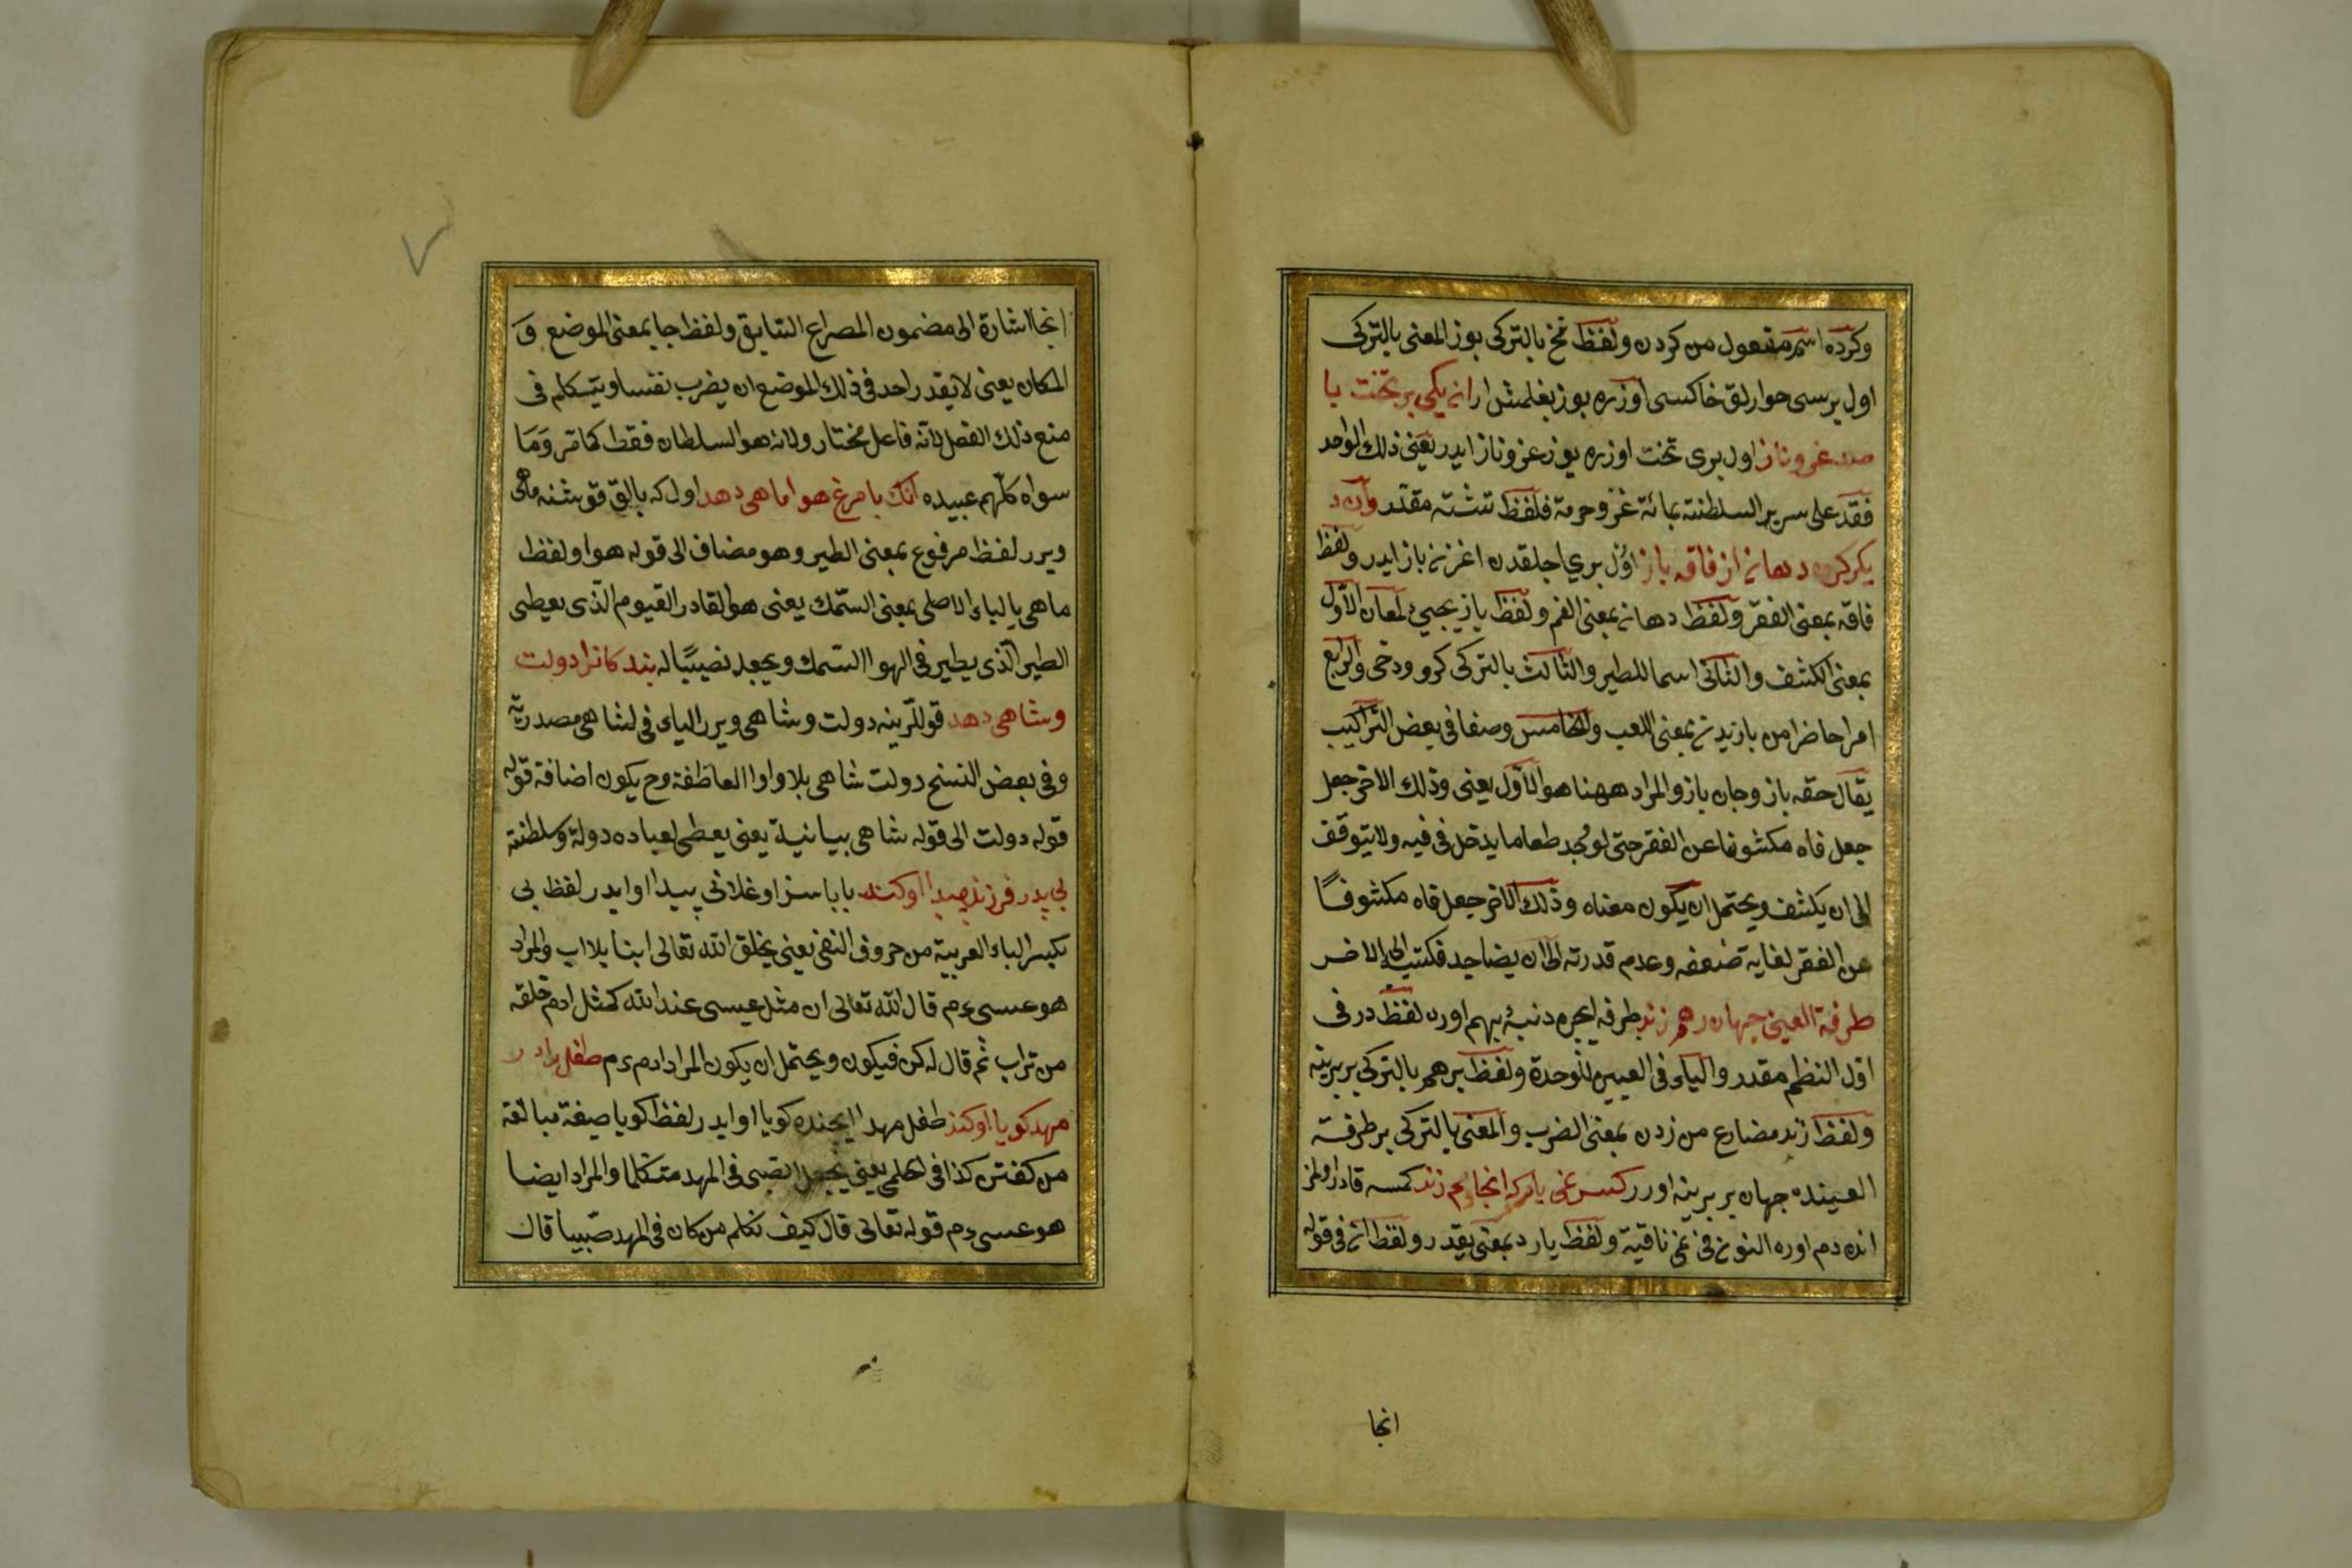 وكرده اسم مفعول من كردن ولفظ نخ بالتركى بوز المعنى بالتركى
اول برسى حوارلق خاكسى اوزره بوز بغلمش ار انه يكى بر تخت با
صد عز و ناز اول برى تخت اوزره يوز عز و ناز ايدر يعنى ذلك الواحد
فقد على سرير السلطنة بمائة عز وحرمة فلفظ نشسته مقدر وآن د
يكر كرده دهانه از فاقه باز اول برى اجلقدن اغزنى باز ايدر ولفظ
فاقه بمعنى الفقر ولفظ دهانه بمعنى الفم ولفظ باز يجيئ لمعان الاول
بمعنى الكشف والثانى اسما للطير والثالث بالتركى كرو ودخى والرابع
امرا حاضرا من بازيدن بمعنى اللعب والخامس وصفا فى بعض التراكيب
يقال حقه باز وجان باز والمراد ههنا هو الاول يعنى وذلك الاخر جعل
جعل فاه مكشوفا عن الفقر حتى لو يجد طعاما يدخل فى فيه ولا يتوقف
الى ان يكشف ويحتمل ان يكون معناه وذلك الاخر جعل فاه مكشوفا
عن الفقر لغاية ضعفه وعدم قدرته الى ان يضا حد الاخر
طرفة العينى جهان بر هم زند طرفه ايجره دنيئ بيهم اورن لفظ در فى
اول النظم مقدر والياء فى العيين للوحدة ولفظ برهم بالتركى بربرينه
ولفظ زند مضارع من زدن بمعنى الضرب والمعنى بالتركى بر طرفة
العينده جهان بربرينه اورر كس نمى يارد كه انجا دم زند كمسه قادر اولمز
انده دم اوره النون فى نمى نافية ولفظ يارد بمعنى يقدر ولفظ انه فى قوله
انجا
انجا اشارة الى مضمون المصراع السابق ولفظ جا بمعنى الموضع و
المكان يعنى لا يقدر احد فى ذلك الموضع ان يضرب نفسا ويتكلم فى
منع ذلك الفعل لانه فاعل مختار ولانه هو السلطان فقط كما مر وما
سواه كلهم عبيده آنك با مرغ هوا ماهى دهد اول كه بالق قوشنه ماهى
ويرر لفظ مرفوع بمعنى الطير وهو مضاف الى قوله هوا ولفظ
ماهى بالياء الاصلى بمعنى السمك يعنى هو القادر القيوم الذى يعطى
الطير الذى يطير فى الهوا السمك ويجعله نصيبا له بندكانرا دولت
وشاهى دهد قوللرينه دولت وشاهى ويرر الياء فى لشاهى مصدرية
وفى بعض النسخ دولت شاهى بلا واوا العاطفة وح يكون اضافة قوله
قوله دولت الى قوله شاهى بيانية يعنى يعطى لعباده دولة وسلطنة
بى پدر فرزند پيدا او كند باباسز اوغلانى پيدا او ايدر لفظ بى
بكسر الباء العربية من حروف النفى يعنى يخلق الله تعالى ابنا بلا اب والمراد
هو عيسى ءم قال الله تعالى ان مثل عيسى عند الله كمثل ادم خلقه
من تراب ثم قال له كن فيكون ويحتمل ان يكون المراد ادم ءم طفل را در
مهد كويا او كند طفل مهد ايچنده كويا او ايدر لفظ كويا صيغة مبالغة
من كفتن كذا فى يعنى يجعل الصبى فى المهد متكلما والمراد ايضا
هو عيسى ءم قوله تعالى قال كيف نكلم من كان فى المهد صبيا قال